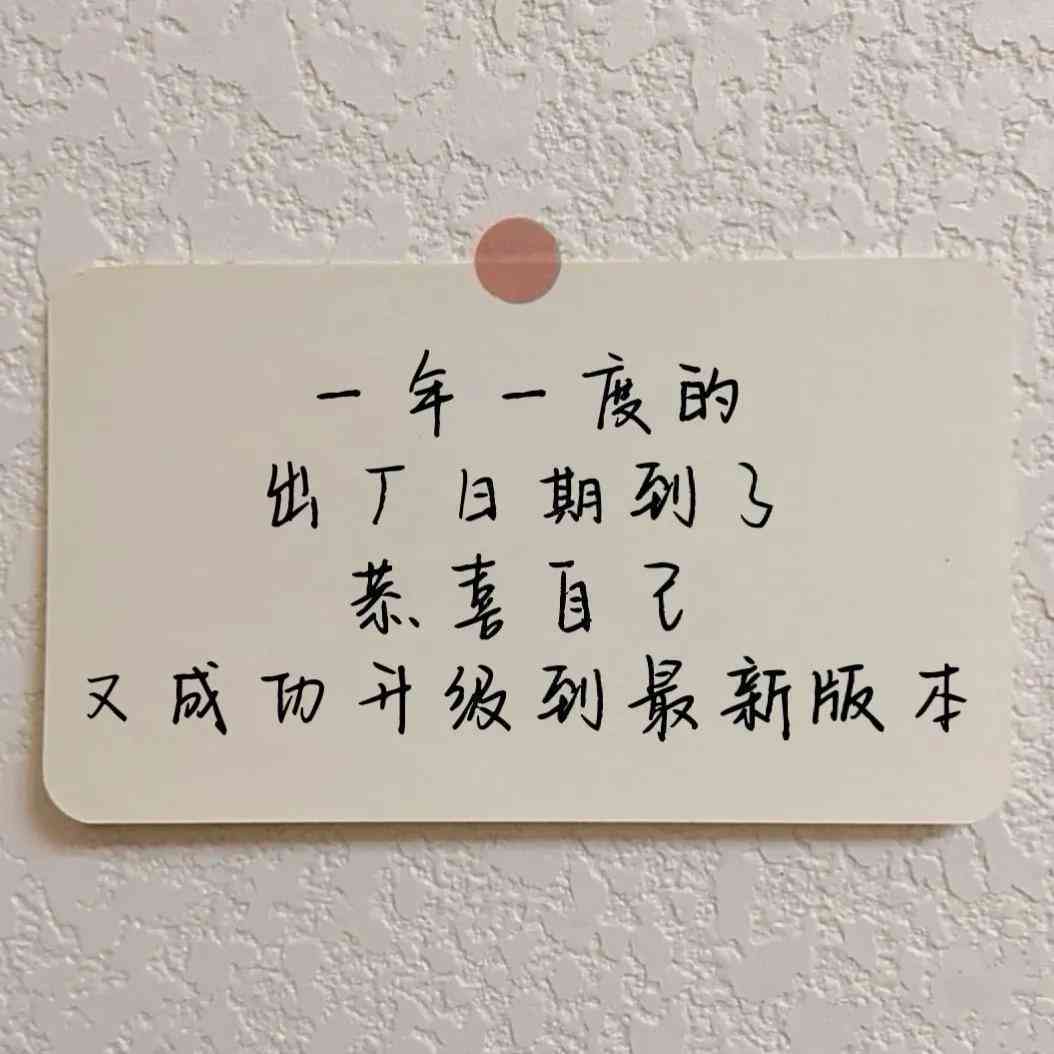 一年一度的
出厂日期到了
恭喜自己
又成功升级到最新版本